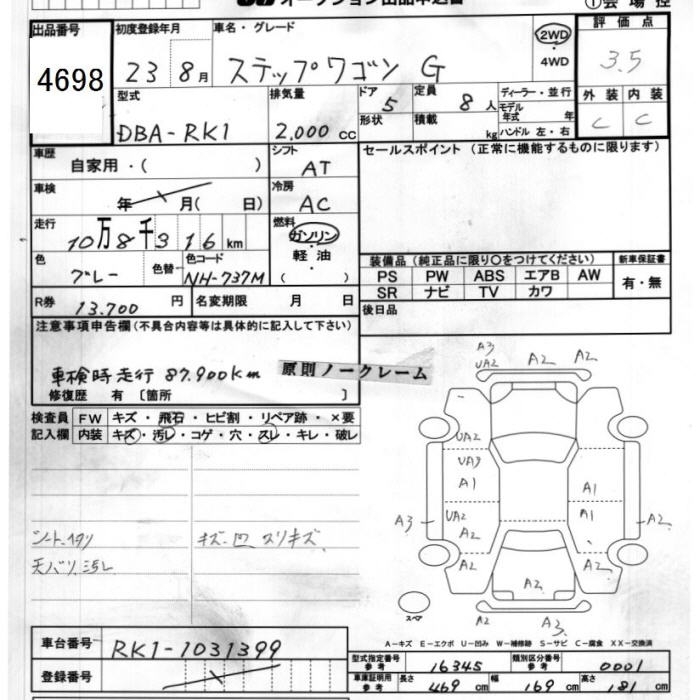 オークション出品申込書 ①会場控
出品番号 4698
初度登録年月 23 8月
車名・グレード ステップワゴン G
2WD ・ 4WD
評価点 3.5
外装 C 内装 C
型式 DBA-RK1
排気量 2,000 cc
ドア 5 形状
定員 8人 積載 kg
ディーラー・並行
モデル年式 年
ハンドル 左・右
車歴 自家用・( )
シフト AT
セールスポイント (正常に機能するものに限ります)
車検 年 月( 日)
冷房 AC
走行 10万8千316km
燃料 ガソリン・軽油・( )
色 グレー 色替 色コード NH-737M
装備品 (純正品に限り○をつけてください)
新車保証書 有・無
PS PW ABS エアB AW
SR ナビ TV カワ
R券 13,700 円 名変期限 月 日
後日品
注意事項申告欄 (不具合内容等は具体的に記入して下さい)
車検時走行 87,900km
原則ノークレーム
修復歴 有 〔箇所 〕
検査員記入欄
FW キズ・飛石・ヒビ割・リペア跡・×要
内装 キズ・汚レ・コゲ・穴・スレ・キレ・破レ
シートヘタリ キズ凹 スリキズ
天バリ汚レ
A3 UA2 A2 A2
UA2
UA3
A1 A1
UA2 A1
A3 A2 A2
A2 A2 A2
スペア A2 A3
A-キズ E-エクボ U-凹み W-補修跡 S-サビ C-腐食 XX-交換済
車台番号 RK1-1031399
登録番号
型式指定番号 参考 16345 類別区分番号 参考 0001
車庫証明用 参考 長さ 469 cm 幅 169 cm 高さ 181 cm